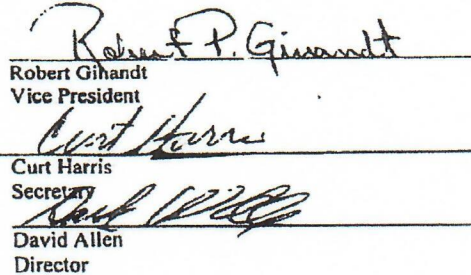 Robert P. Ginandt
Robert Gihandt
Vice President
Curt Harris
Curt Harris
Secretary
David Allen
Director